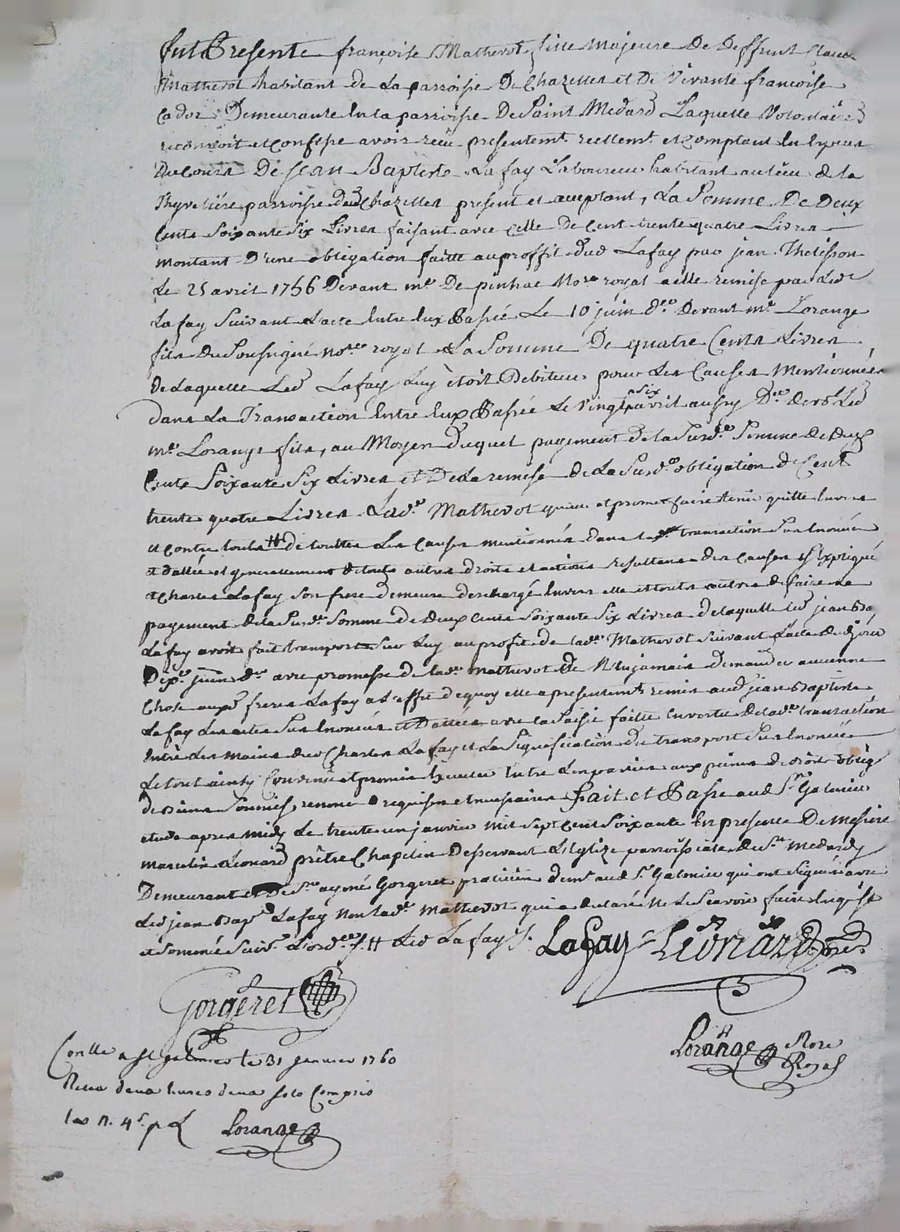 fut Presente françoise Mathevot fille Majeure De Deffunt Claude
Mathevot habitant de La parroisse De Chazelles et De Vivante françoise
Cador Demeurante En la parroisse De Saint Medard Laquelle Volontaire
reconnoit et confesse avoir reçu presentement reellement et comptant
De Jean Baptiste Lafay Laboureur habitant au lieu de la
Thyveliere parroisse dud Chazelles present et acceptant, La Somme De Deux
Cents Soixante Six Livres faisant avec celle de Cent trente quatre Livres
montant D'une obligation faitte au proffit dud Lafay par jean Thelisson
Le 25 avril 1756 Devant me De pinhac Nore royal a elle remise par led
Lafay Suivant L'acte Entre Eux Passée Le 10 juin dr Devant me Lorange
fils du Soussigné nore royal La Somme De quatre Cents Livres
de Laquelle Led Lafay Luy Etoit Debiteur pour Les Causes Mentionnées
dans La Transaction Entre Eux Passée Le Vingt six avril aussy Dr Led
me Lorange fils, au Moyen duquel payement de la Susde Somme de Deux
Cents Soixante Six Livres et De La remise de La Susde obligation de Cent
trente quatre Livres Lade Mathevot quitte et promet faire tenir quitte Envers
et contre touts de touttes Les Causes mentionnées dans La transaction Sus Enoncée
et dattée et generallement de touts autres droits et actions resultans des causes Expliqué
et Charles Lafay Son frere demeure dechargé Envers elle et touts autres de faire Le
payement de la Susde Somme de deux Cents Soixante Six Livres de laquelle led jean Bap
Lafay avoit fait transport Sur Luy au profit de lade Mathevot Suivant L'acte du
Dix juin dr avec promesse de lade Mathevot de N'Luy jamais demander aucunne
Chose auxd freres Lafay a L'effet de quoy elle a presentement remis aud jean Baptiste
Lafay Les actes Sus Enoncés et Dattées avec La Saisie faitte En vertu de lade transaction
Entre Les Mains dud Charles Lafay et La Signification du transport Sus Enoncé
Le tout ainsy Convenu et promis Executer Entre Les parties aux peines de droit oblig
de biens Soumis, renoncé requises et necessaires fait et Passé aud St Galmier
etude apres midy Le trente un janvier mil Sept Cent Soixante En presence De Messire
Marcellin Leonard prêtre Chapelin Desservant L'Eglize parroissiale de St Medard y
Demeurant et De Sr aymé Gorgeret praticien demt aud St Galmier qui ont Signé avec
Led jean Bapt Lafay Non lade Mathevot qui a declaré Ne Le Scavoir faire Enquise
et Sommée Suivt L'orde Led Lafay
Lafay Léonard ptre
Gorgeret
Lorange Nore
Royal
Conlle a St galmier le 31 janvier 1760
Recu deux livres deux sols Compris
les n. 4s p L Lorange